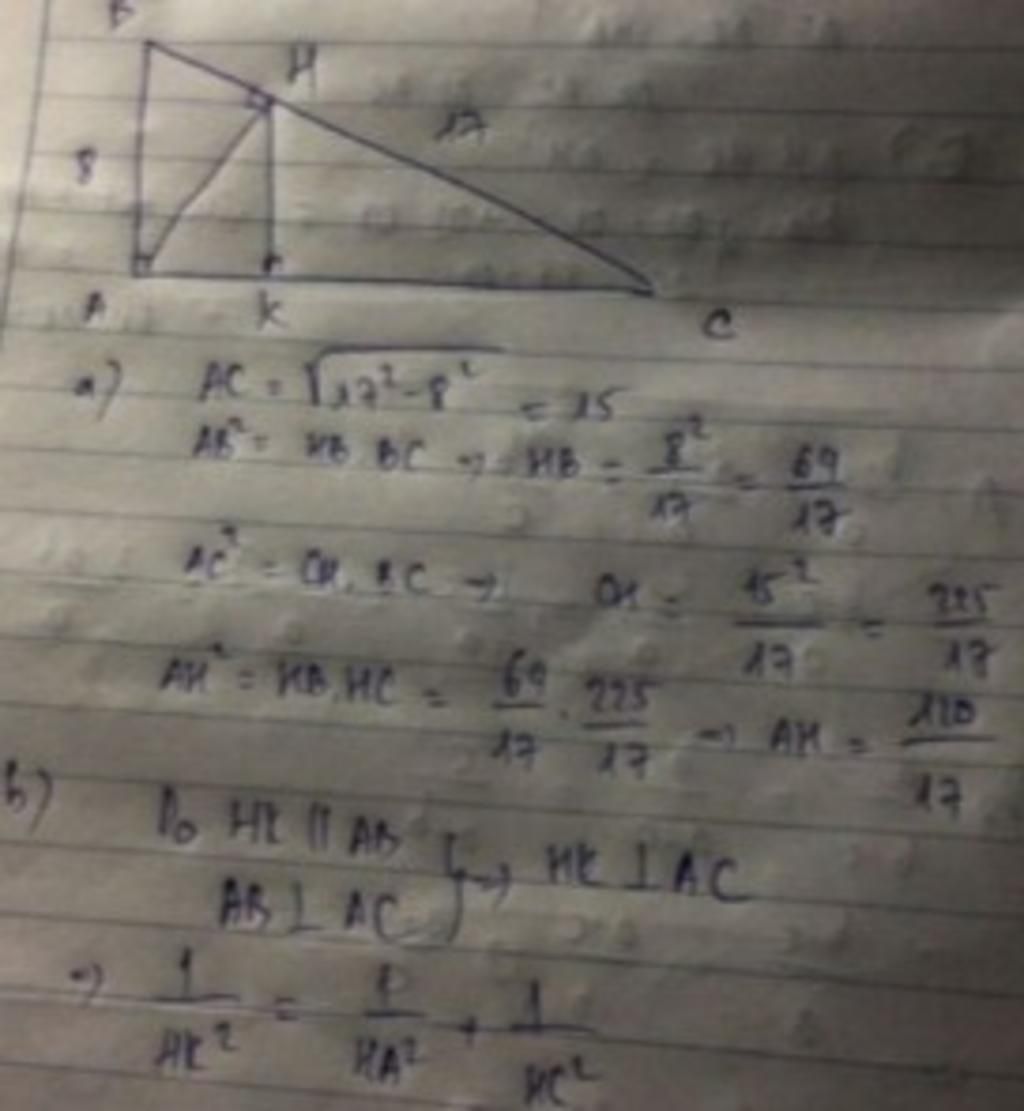 B
H
17
8
A K C
a) AC = √17² - 8² = 15
AB² = HB.BC → HB = 8²/17 = 64/17
AC² = CH.BC → CH = 15²/17 = 225/17
AH² = HB.HC = 64/17 . 225/17 → AH = 120/17
b) Do HK // AB
AB ⊥ AC } → HK ⊥ AC
→ 1/HK² = 1/HA² + 1/HC²